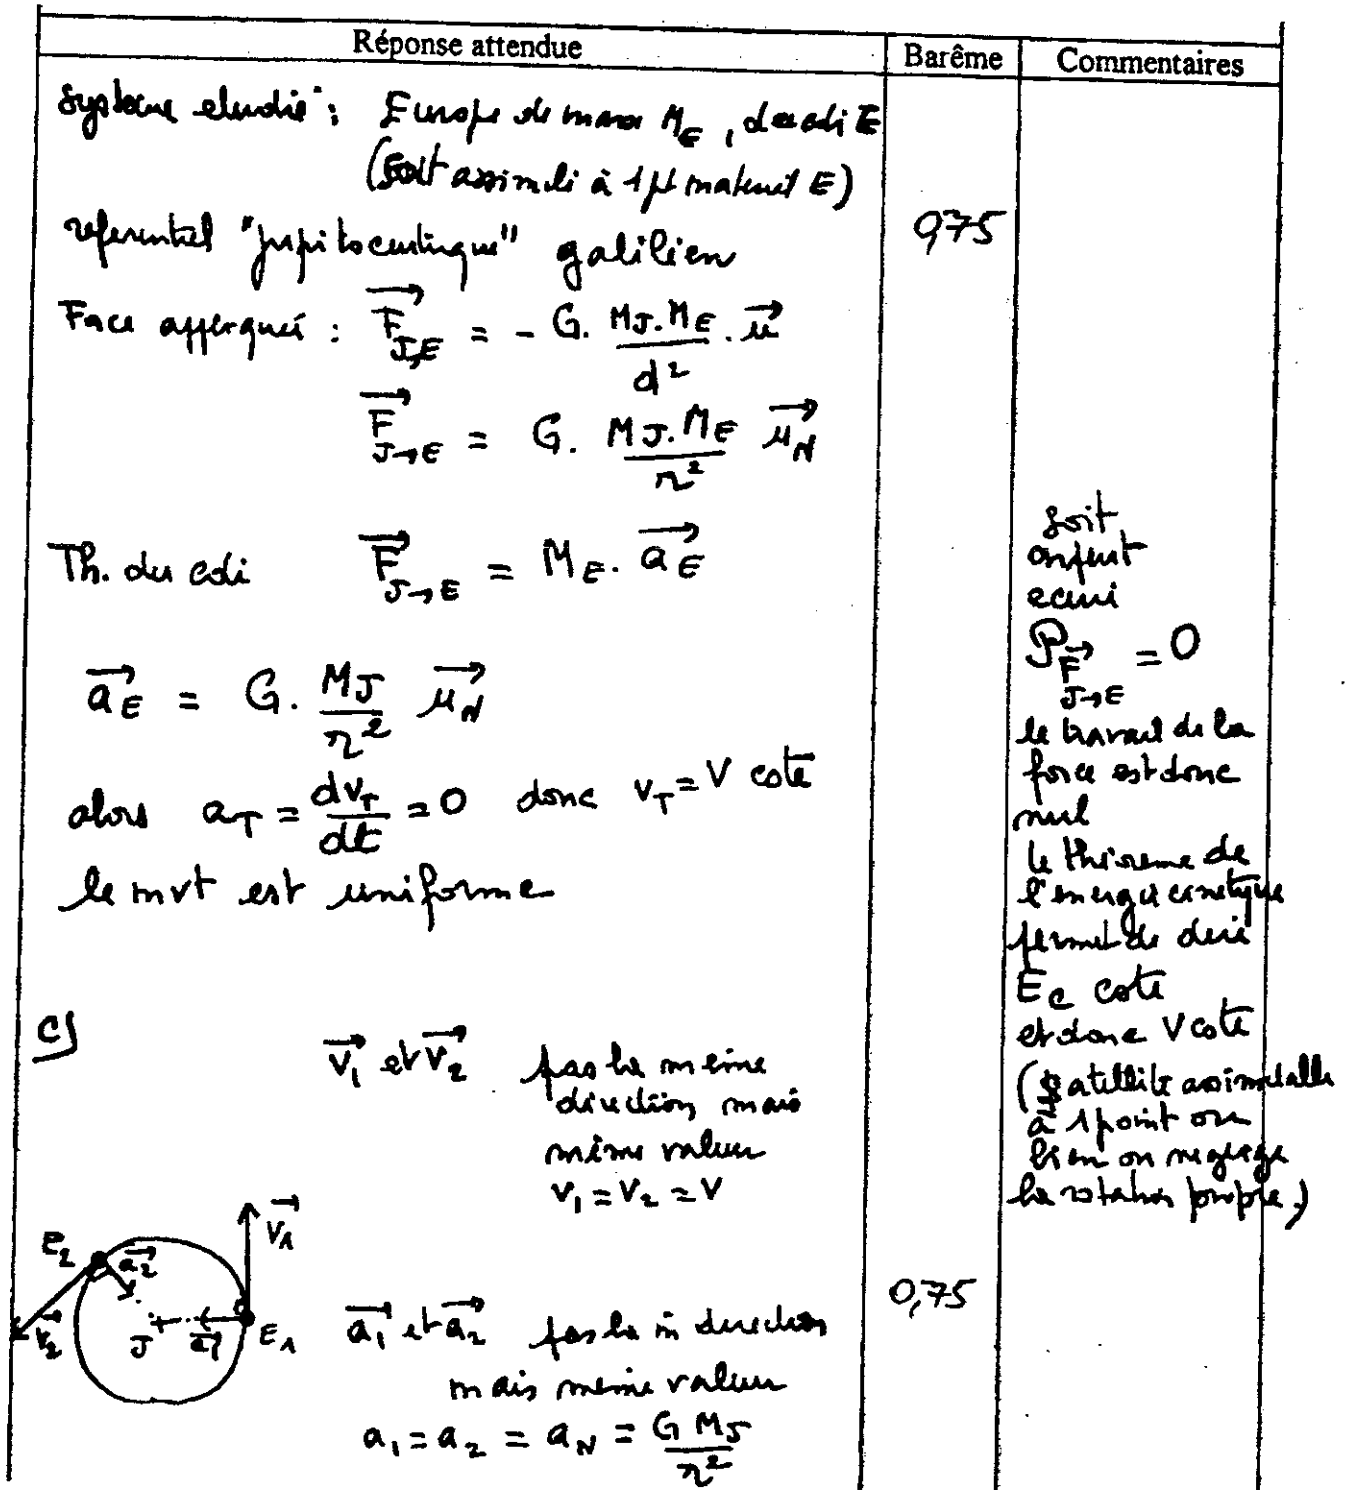 Réponse attendue | Barême | Commentaires
système etudié : Europe de masse M_E, de cdi E
(Soit assimilé à 1 pt matériel E)
referentiel "jupitocentrique" galiléen
0,75
Force appliquée : \vec{F}_{J,E} = - G. \frac{M_J.M_E}{d^2} . \vec{u}
\vec{F}_{J→E} = G. \frac{M_J.M_E}{r^2} \vec{u_N}
Th. du cdi \vec{F}_{J→E} = M_E. \vec{a_E}
\vec{a_E} = G. \frac{M_J}{r^2} \vec{u_N}
alors a_T = \frac{dv_T}{dt} = 0 donc v_T = V cste
le mvt est uniforme
soit
on peut
ecrire
P_{\vec{F}_{J→E}} = 0
le travail de la
force est donc
nul
le théoreme de
l'energie cinetique
permet de dire
E_c cste
et donc V cste
(satellite assimilable
à 1 point ou
bien on neglige
la rotation propre.)
c)
\vec{V_1} et \vec{V_2} pas la meme
direction mais
même valeur
V_1 = V_2 = V
E_2 \vec{a_2} \vec{V_1}
\vec{V_2} J \vec{a_1} E_1
\vec{a_1} et \vec{a_2} pas la m direction
mais meme valeur
0,75
a_1 = a_2 = a_N = \frac{G M_J}{r^2}